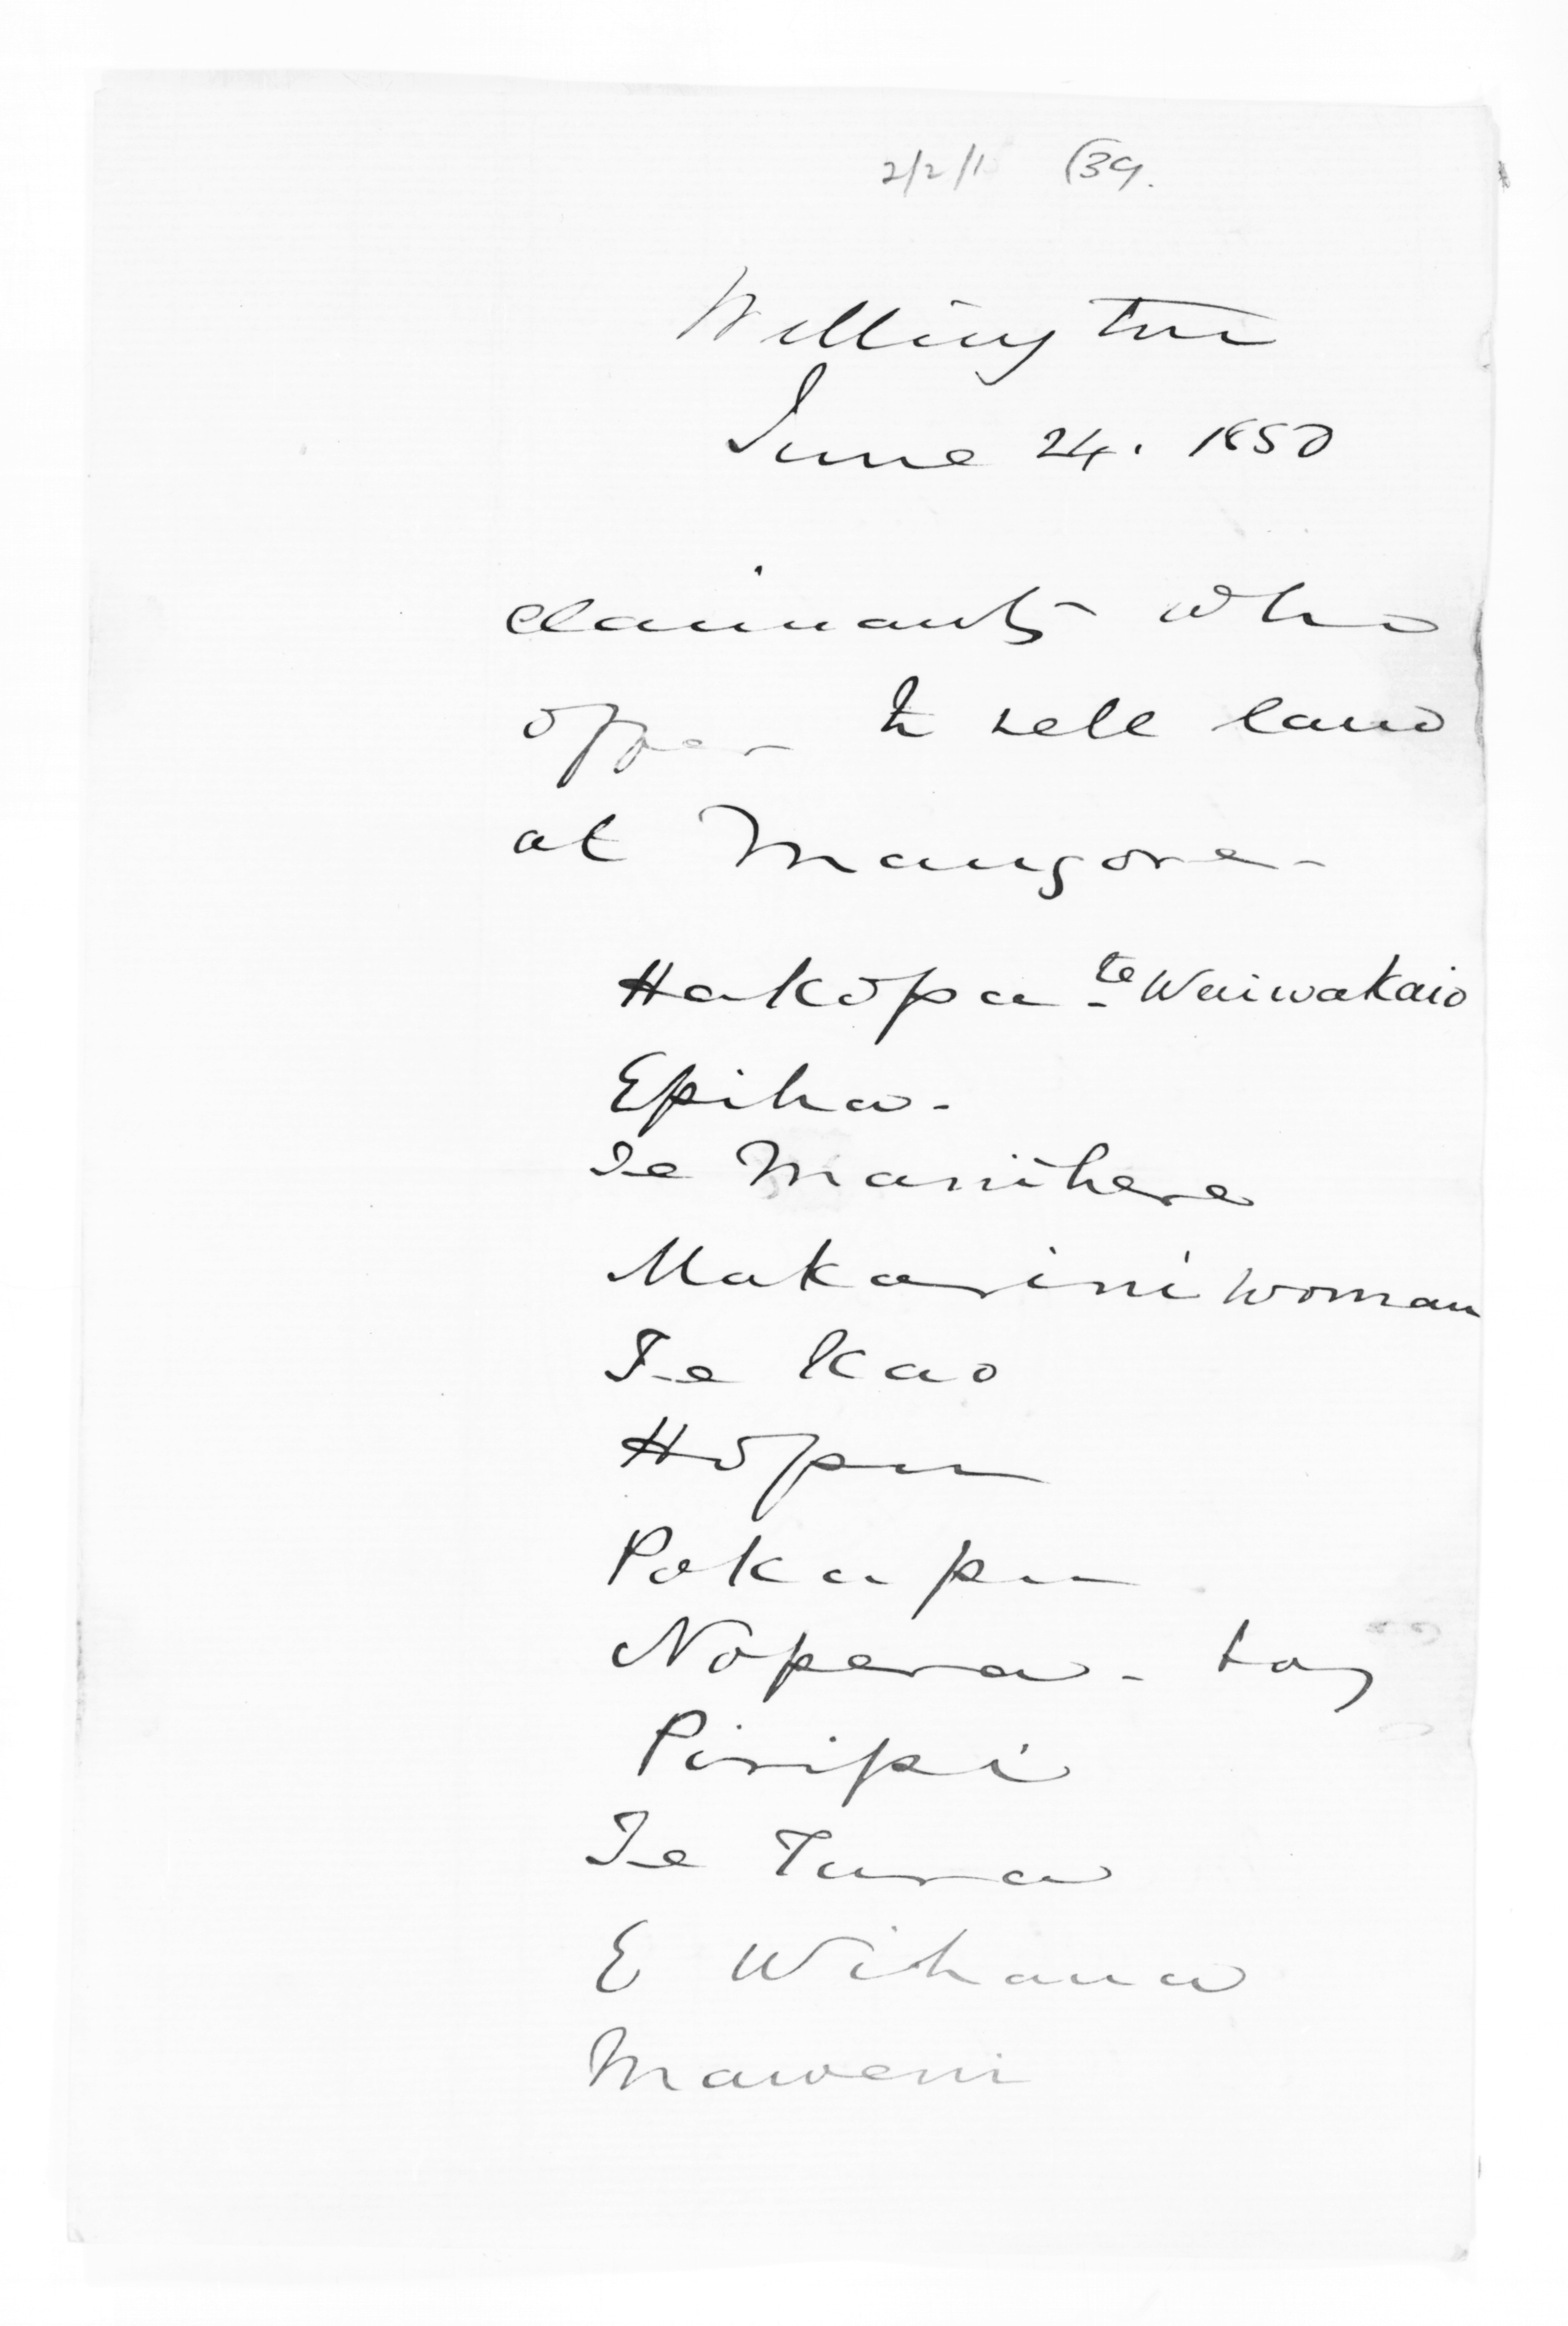 2/2/1 (39.
Wellington
June 24. 1850
claimants who
offer to sell land
at Mangore-
Hakopa te Waiwakaio
Epiha-
Te Manihera
Makarini woman
Te Kao
Hopu
Pokapu
Nopera - boy
Piripi
Te Tura
E Wihana
Maweni